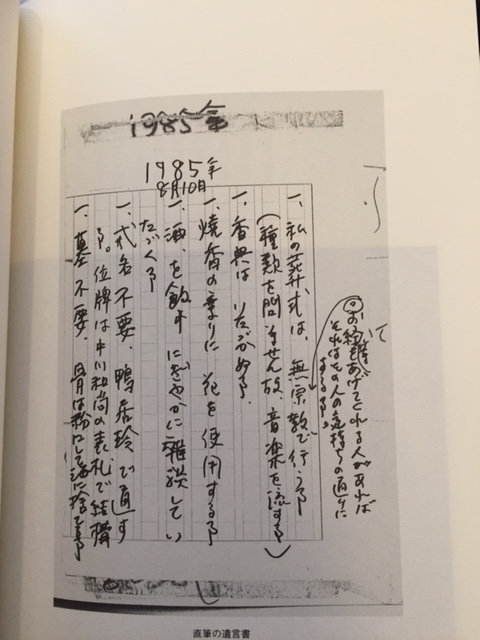 1985年
1985年
8月10日
◎お経をあげてくれる人があれば
それはその人の気持ちの通りに
する事。
一、私の葬式は、無宗教で行う事
(種類を問ません故、音楽を流す事)
一、香典はいただかぬ事、
一、焼香の変りに花を使用する事
一、酒を飲み にぎやかに雑談してい
ただく事
一、戒名不要、鴨居玲で通す
事。位牌は中川和尚の表札で結構
一、墓不要、骨は粉にして海に捨てる事
直筆の遺言書